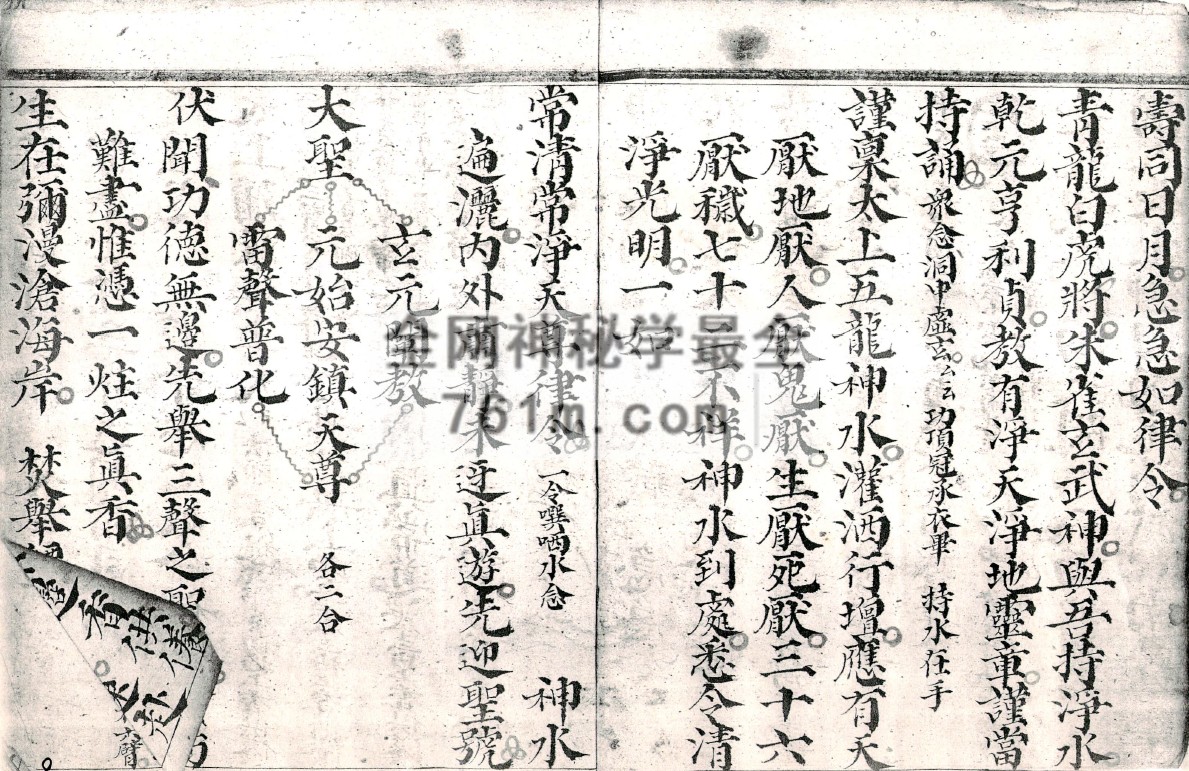 壽同日月急急如律令
青龍白虎將朱雀玄武神與吾持淨水
乾元亨利貞教有淨天淨地靈童謹當
持誦 眾念洞中虛玄云云 功項冠永衣畢 持水在手
謹稟太上五龍神水灌洒行壇應有天
厭地厭人厭鬼厭生厭死厭三十六
厭穢七十二不祥神水到處悉令清
淨光明一如
常清常淨天尊律令 一令噀哂水念 神水
遍灑內外肅靜未迓真遊先迎聖號
玄元闡教
大聖 元始安鎮天尊 各二台
雷聲普化
伏聞功德無邊先舉三聲之聖
難盡惟憑一炷之真香
生在彌漫滄海岸 焚舉
761n.com